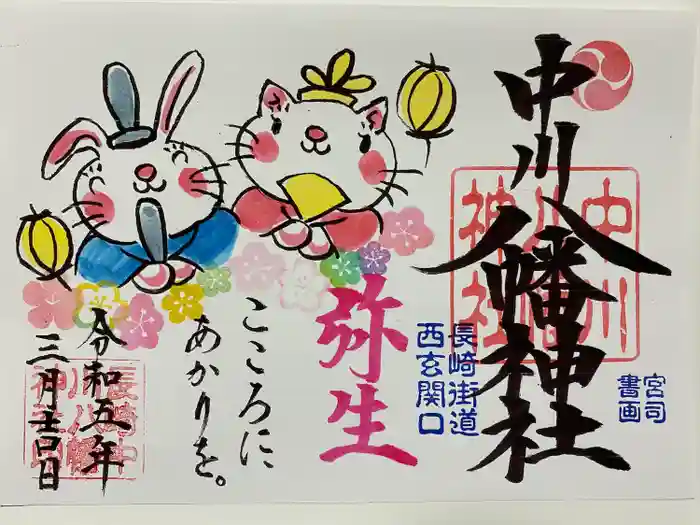 中川八幡神社
宮司
書画
長崎街道
西玄関口
弥生
こころに、
あかりを。
令和五年
三月吉日
中川
八幡
神社